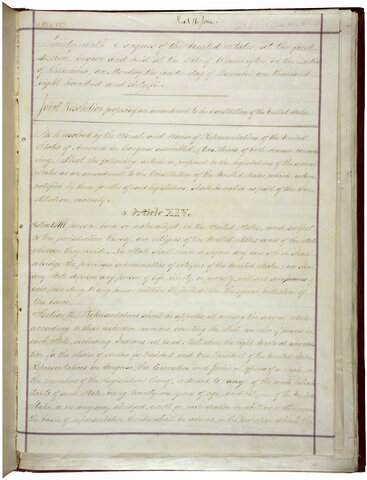 Thirty-ninth Congress of the United States, at the first
session, begun and held at the City of Washington, in the District
of Columbia, on Monday the fourth day of December one thousand
eight hundred and sixty-five
Joint Resolution proposing an amendment to the Constitution of the United States.
Be it resolved by the Senate and House of Representatives of the United
States of America in Congress assembled, two thirds of both Houses concur-
ring, That the following article be proposed to the legislatures of the several
States as an amendment to the Constitution of the United States, which, when
ratified by three fourths of said legislatures, shall be valid as part of the Con-
stitution, namely:
Article XIV.
All persons born or naturalized in the United States, and subject
to the jurisdiction thereof, are citizens of the United States and of the State
wherein they reside. No State shall make or enforce any law which shall
abridge the privileges or immunities of citizens of the United States; nor shall
any State deprive any person of life, liberty, or property, without due process of
law; nor deny to any person within its jurisdiction the equal protection of
the laws.
Section 2. Representatives shall be apportioned among the several States
according to their respective numbers, counting the whole number of persons in
each State, excluding Indians not taxed. But when the right to vote at any elec-
tion for the choice of electors for President and Vice President of the United States,
Representatives in Congress, the Executive and Judicial officers of a State, or
the members of the Legislature thereof, is denied to any of the male inhabi-
tants of such State, being twenty-one years of age, and citizens of the United
States, or in any way abridged, except for participation in rebellion, or other crime,
the basis of representation therein shall be reduced in the proportion which the